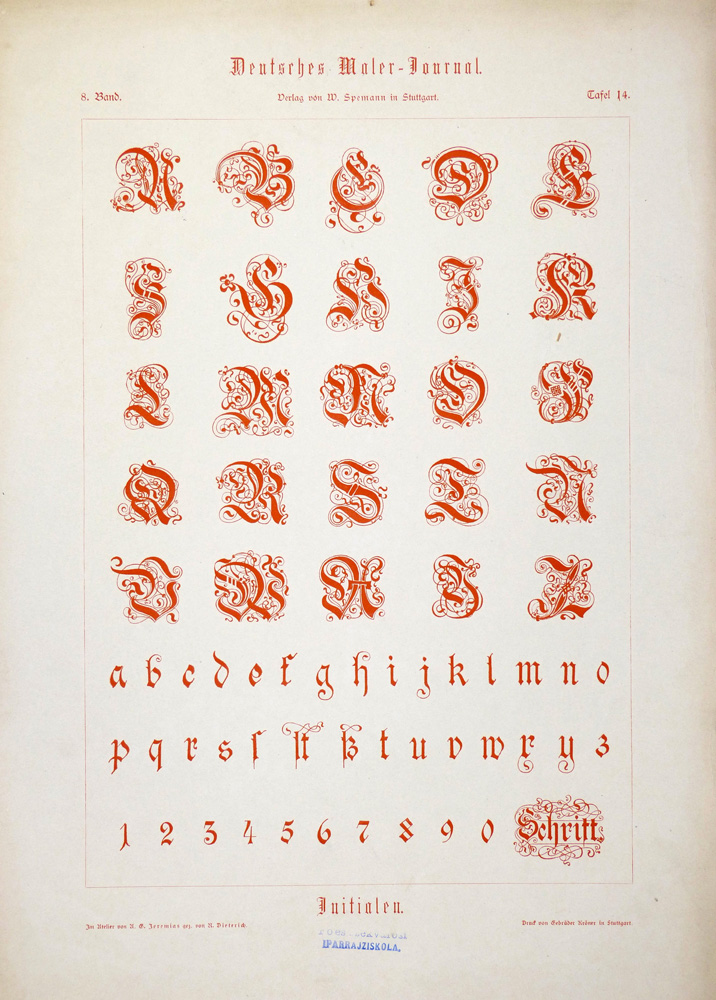 Deutsches Maler-Journal.
8. Band.
Verlag von W. Spemann in Stuttgart.
Tafel 14.
A B C D E
F G H I K
L M N O P
Q R S T U
V W X Y Z
a b c d e f g h i j k l m n o
p q r s ſ ſt ß t u v w x y z
1 2 3 4 5 6 7 8 9 0 Schritt.
Initialen.
Im Atelier von A. G. Jeremias gez. von A. Dieterich.
Druck von Gebrüder in Stuttgart.
IPARRAJZISKOLA.